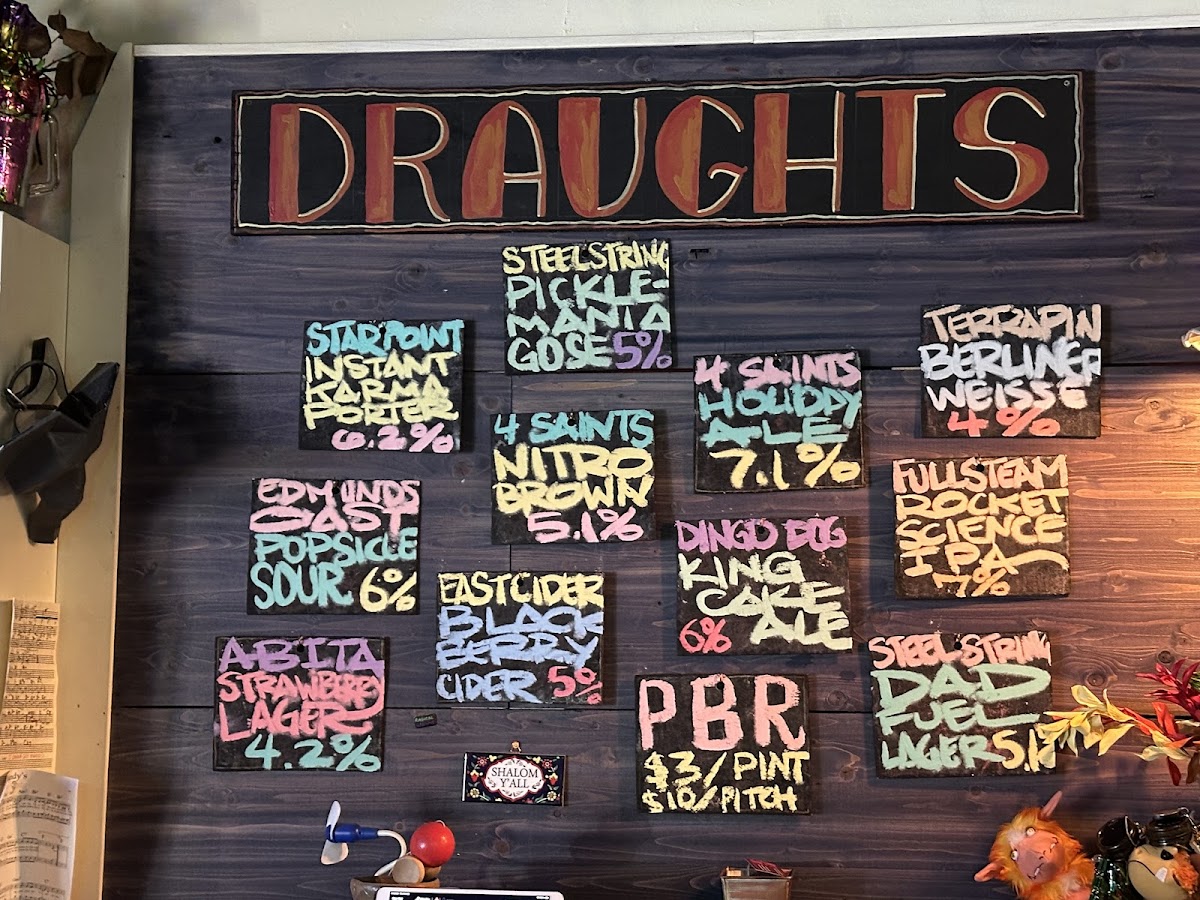 DRAUGHTS
STEELSTRING
PICKLE-
MANIA
GOSE 5%
STARPOINT
INSTANT
KARMA
PORTER
6.2%
4 SAINTS
HOLIDAY
ALE
7.1%
TERRAPIN
BERLINER
WEISSE
4%
4 SAINTS
NITRO
BROWN
5.1%
FULLSTEAM
ROCKET
SCIENCE
IPA
7%
EDMUNDS
OAST
POPSICLE
SOUR 6%
DINGO DOG
KING
CAKE
6% ALE
EASTCIDER
BLACK
BERRY
CIDER 5%
ABITA
STRAWBERRY
LAGER
4.2%
STEEL STRING
DAD
FUEL
LAGER 5.1
PBR
$3/PINT
$10/PITCH
SHALOM
Y'ALL